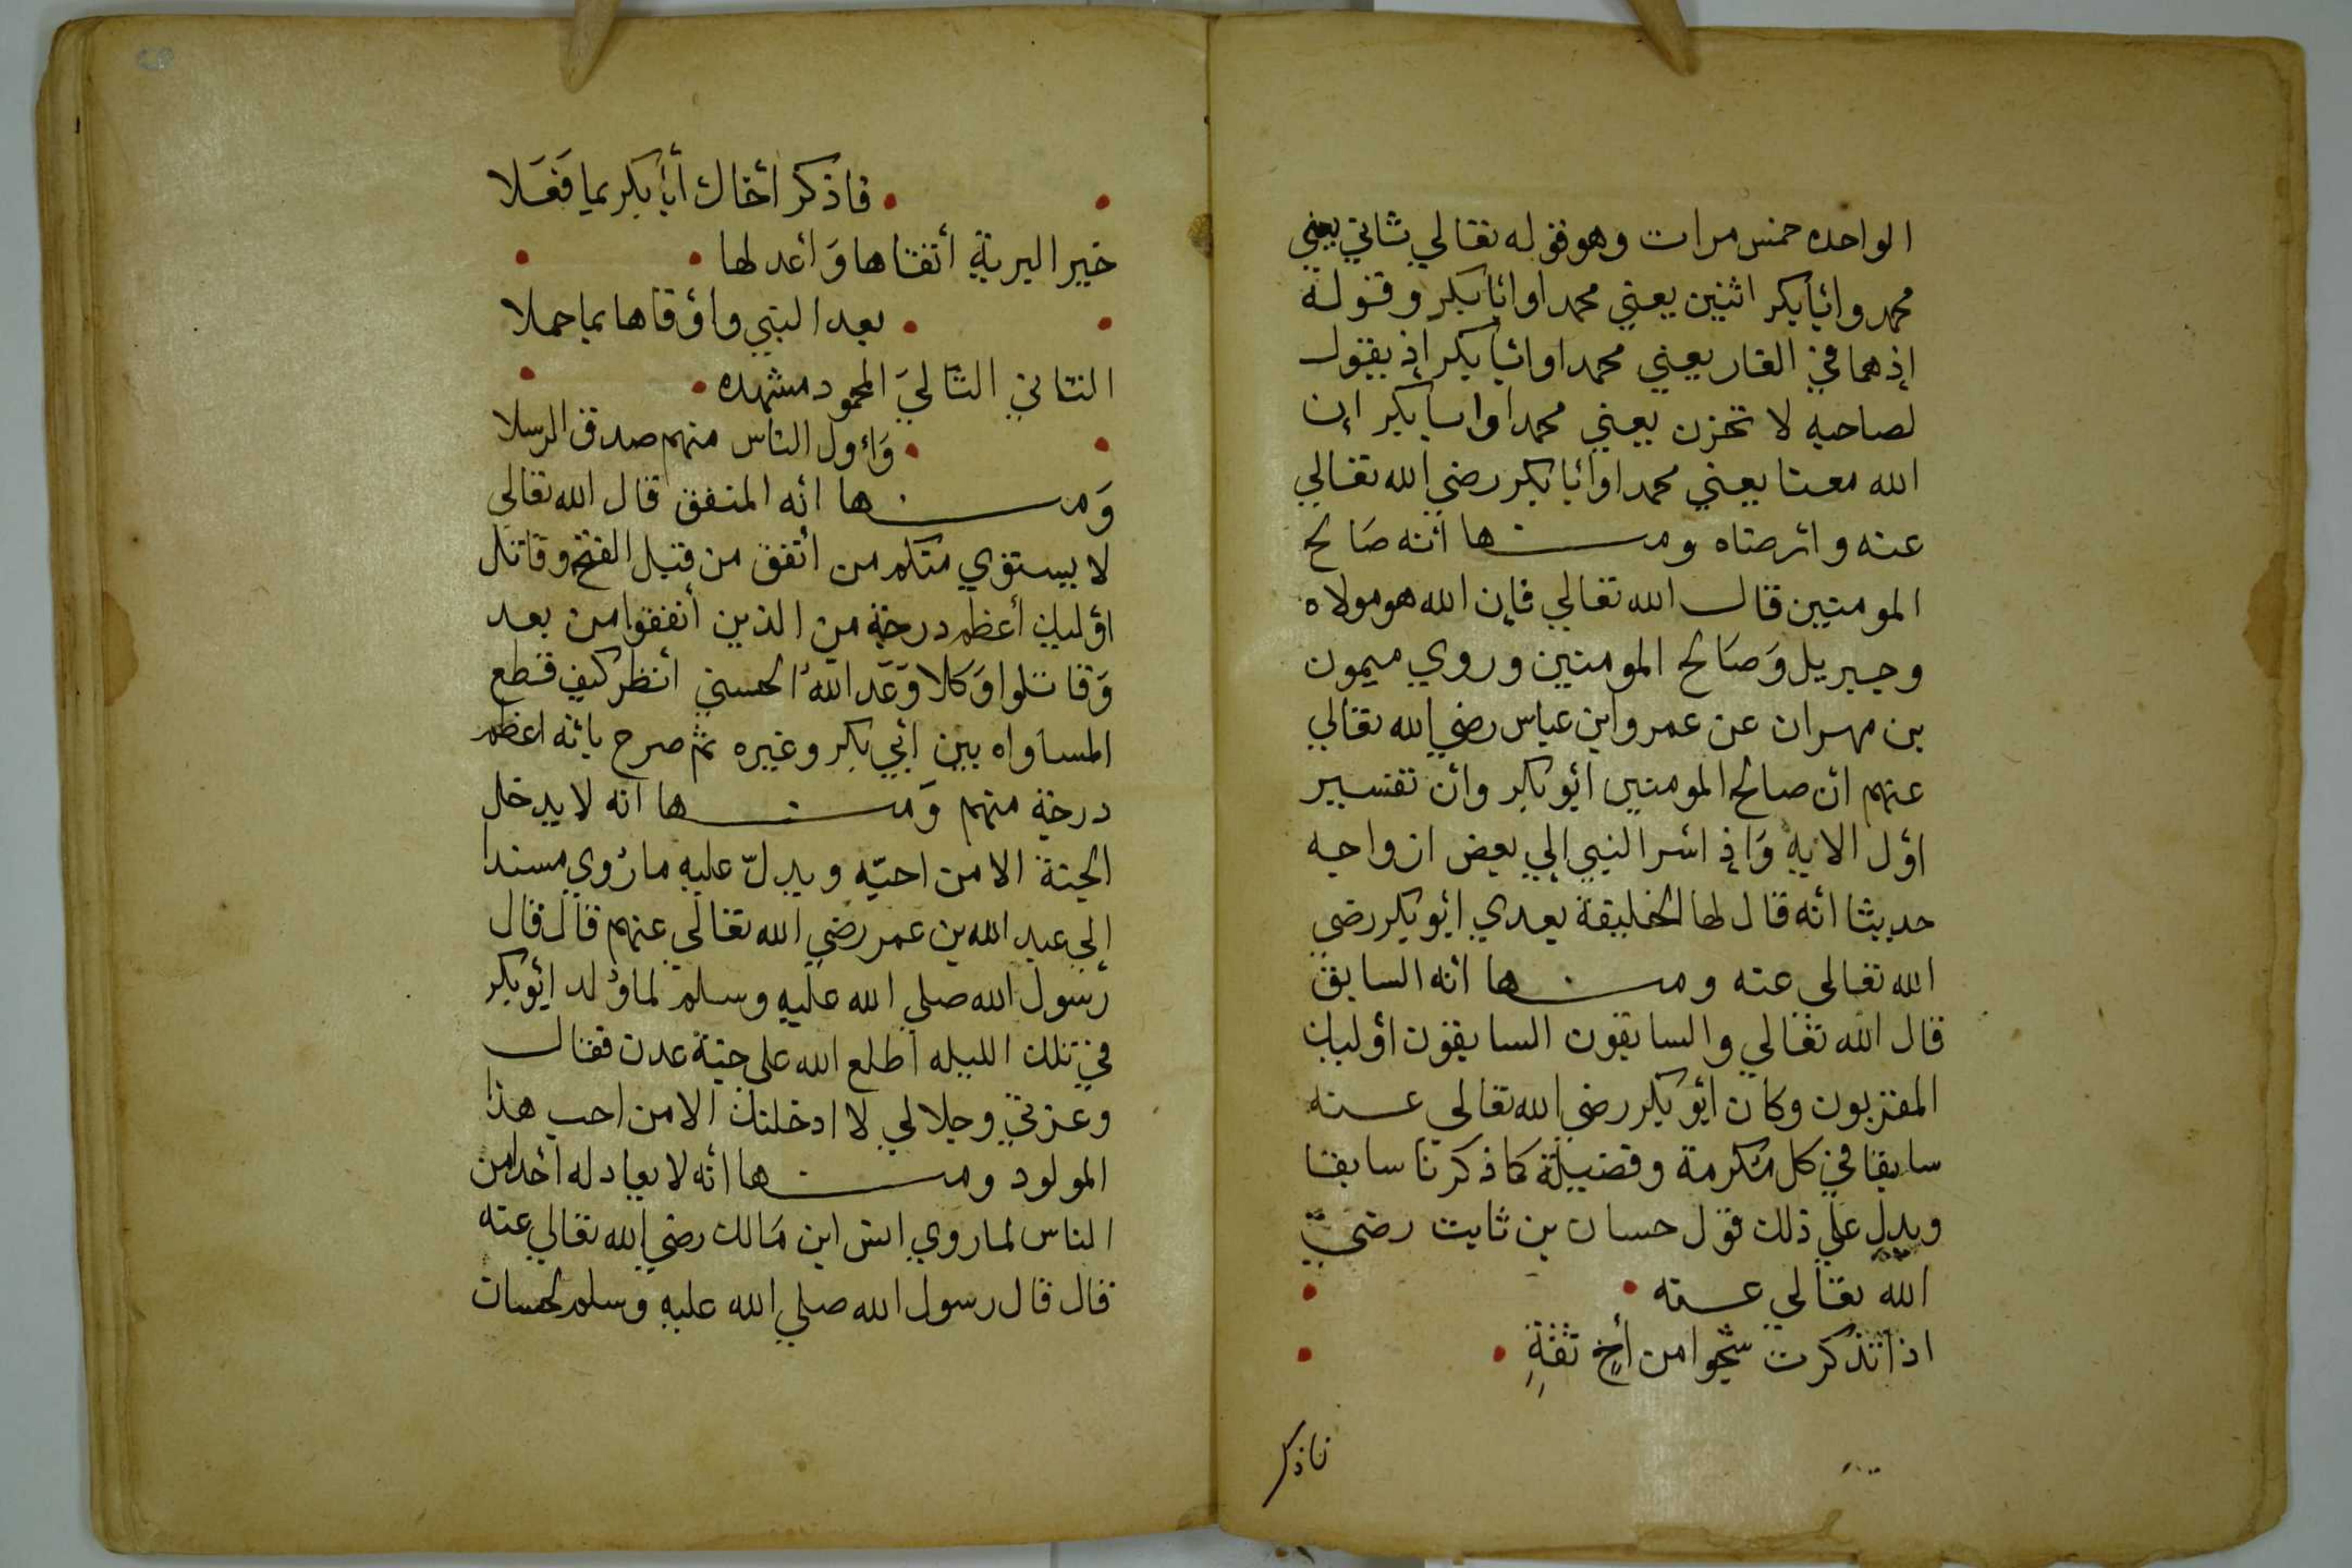 الواحده خمس مرات وهو قوله تعالي ثاني يعني
محمد وأبابكر اثنين يعني محمدا وأبابكر وقوله
إذ هما في الغار يعني محمدا وأبابكر إذ يقول
لصاحبه لا تحزن يعني محمدا وابابكر إن
الله معنا يعني محمدا وأبابكر رضي الله تعالي
عنه وأرضاه ومنها أنه صالح
المومنين قال الله تعالي فإن الله هو مولاه
وجبريل وَصَالح المومنين وروي ميمون
بن مهران عن عمر وابن عباس رضي الله تعالي
عنهم أن صالح المومنين أبوبكر وأن تفسير
اؤل الايه وَاذ أسر النبي إلي بعض ازواجه
حديثا أنه قال لها الخليفة بعدي أبوبكر رضي
الله تعالي عنه ومنها أنه السابق
قال الله تعالي والسابقون السابقون أوليك
المقربون وكان أبوبكر رضي الله تعالي عنه
سابقا في كل مكرمة وفضيلة كما ذكرنا سابقا
ويدل علي ذلك قول حسان بن ثابت رضي
الله تعالي عنه
اذا تذكرت شجوا من أخٍ ثقةٍ
فاذكر
فاذكر أخاك أبابكر بما فَعَلا
خير البرية أتقاها وَأعدلها
بعد النبي وأوفاها بما حملا
الثاني التاليَ المحمود مشهده
وَأول الناس منهم صدق الرسلا
وَمنها أنه المنفق قال الله تعالي
لا يستوي منكم من أنفق من قبل الفتح وقاتل
اؤليك أعظم درجة من الذين أنفقوا من بعد
وَقاتلوا وَكلا وَعَد اللهُ الحسني أنظر كيف قطع
المساواه بين أبي بكر وغيره ثم صرح بأنه اعظم
درجة منهم وَمنها أنه لا يدخل
الجنة الا من احبّه ويدلّ عليه ما رُوي مسندا
إلي عبد الله بن عمر رضي الله تعالي عنهم قال قال
رسول الله صلي الله عليه وسلم لما وُلد أبوبكر
في تلك الليله أطلع الله على جنة عدن فقال
وعزتي وجلالي لا ادخلتك الا من احب هذا
المولود ومنها أنه لا يعادله أحد من
الناس لما روي انس ابن مَالك رضي الله تعالي عنه
قال قال رسول الله صلي الله عليه وسلم لحسان